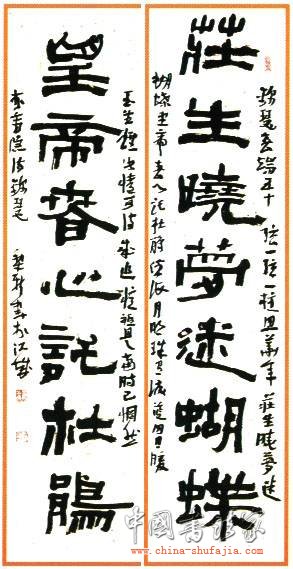 錦瑟無端五十弦一弦一柱思華年莊生曉夢迷
莊生曉夢迷蝴蝶
蝴蝶望帝春心託杜鵑滄海月明珠有淚藍田日暖
玉生煙此情可待成追憶祗是當時已惘然
望帝春心託杜鵑
李商隱詩錦瑟
中國書法家
www.china-shufajia.com